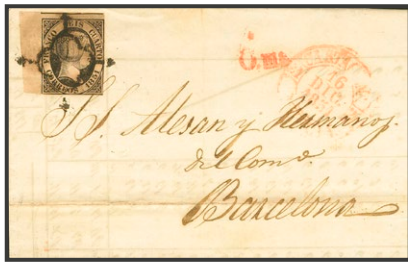 FRANCO 6 CUARTOS 1851
16
DIC
S. S. Alesan y Hermanos.
del Comº.
Barcelona